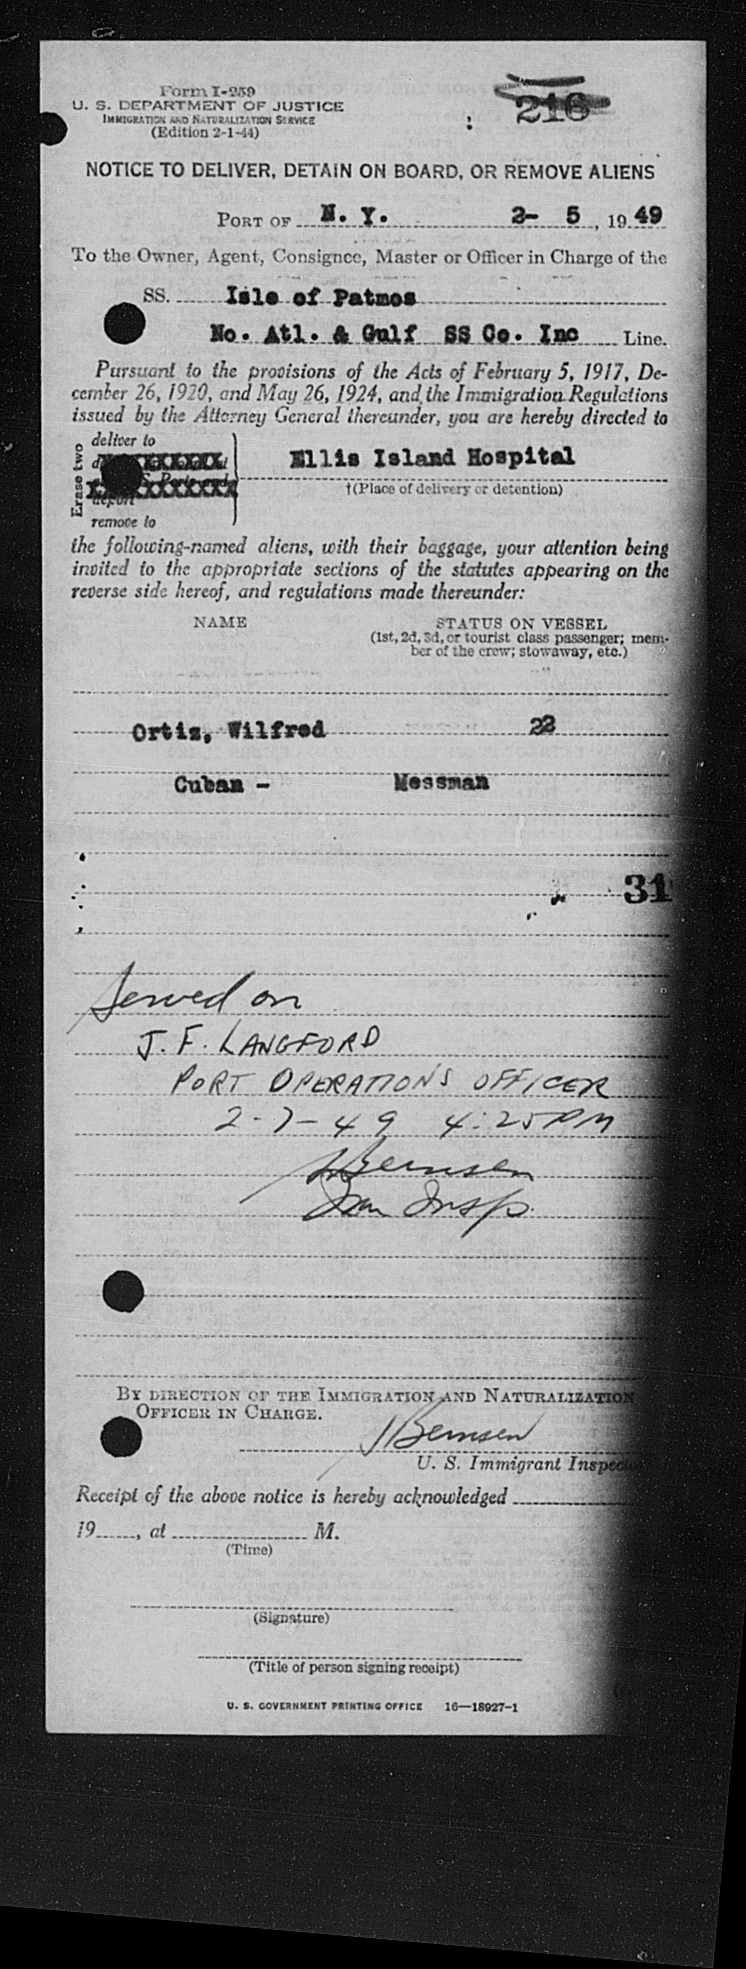 Form I-259
U. S. DEPARTMENT OF JUSTICE
IMMIGRATION AND NATURALIZATION SERVICE
(Edition 2-1-44)
216
NOTICE TO DELIVER, DETAIN ON BOARD, OR REMOVE ALIENS
PORT OF N. Y. 2- 5, 1949
To the Owner, Agent, Consignee, Master or Officer in Charge of the
SS. Isle of Patmos
No. Atl. & Gulf SS Co. Inc Line.
Pursuant to the provisions of the Acts of February 5, 1917, De-
cember 26, 1920, and May 26, 1924, and the Immigration Regulations
issued by the Attorney General thereunder, you are hereby directed to
Erase two
deliver to
Ellis Island Hospital
†(Place of delivery or detention)
deport
remove to
the following-named aliens, with their baggage, your attention being
invited to the appropriate sections of the statutes appearing on the
reverse side hereof, and regulations made thereunder:
NAME STATUS ON VESSEL
(1st, 2d, 3d, or tourist class passenger; mem-
ber of the crew; stowaway, etc.)
Ortiz, Wilfred
Cuban - Messman
31
Served on
J. F. LANGFORD
PORT OPERATIONS OFFICER
2-7-49 4:25 PM
JBernsen
Imm Insp.
BY DIRECTION OF THE IMMIGRATION AND NATURALIZATION
OFFICER IN CHARGE.
JBernsen
U. S. Immigrant Inspector
Receipt of the above notice is hereby acknowledged
19____, at ____ M.
(Time)
(Signature)
(Title of person signing receipt)
U. S. GOVERNMENT PRINTING OFFICE 16—18927-1